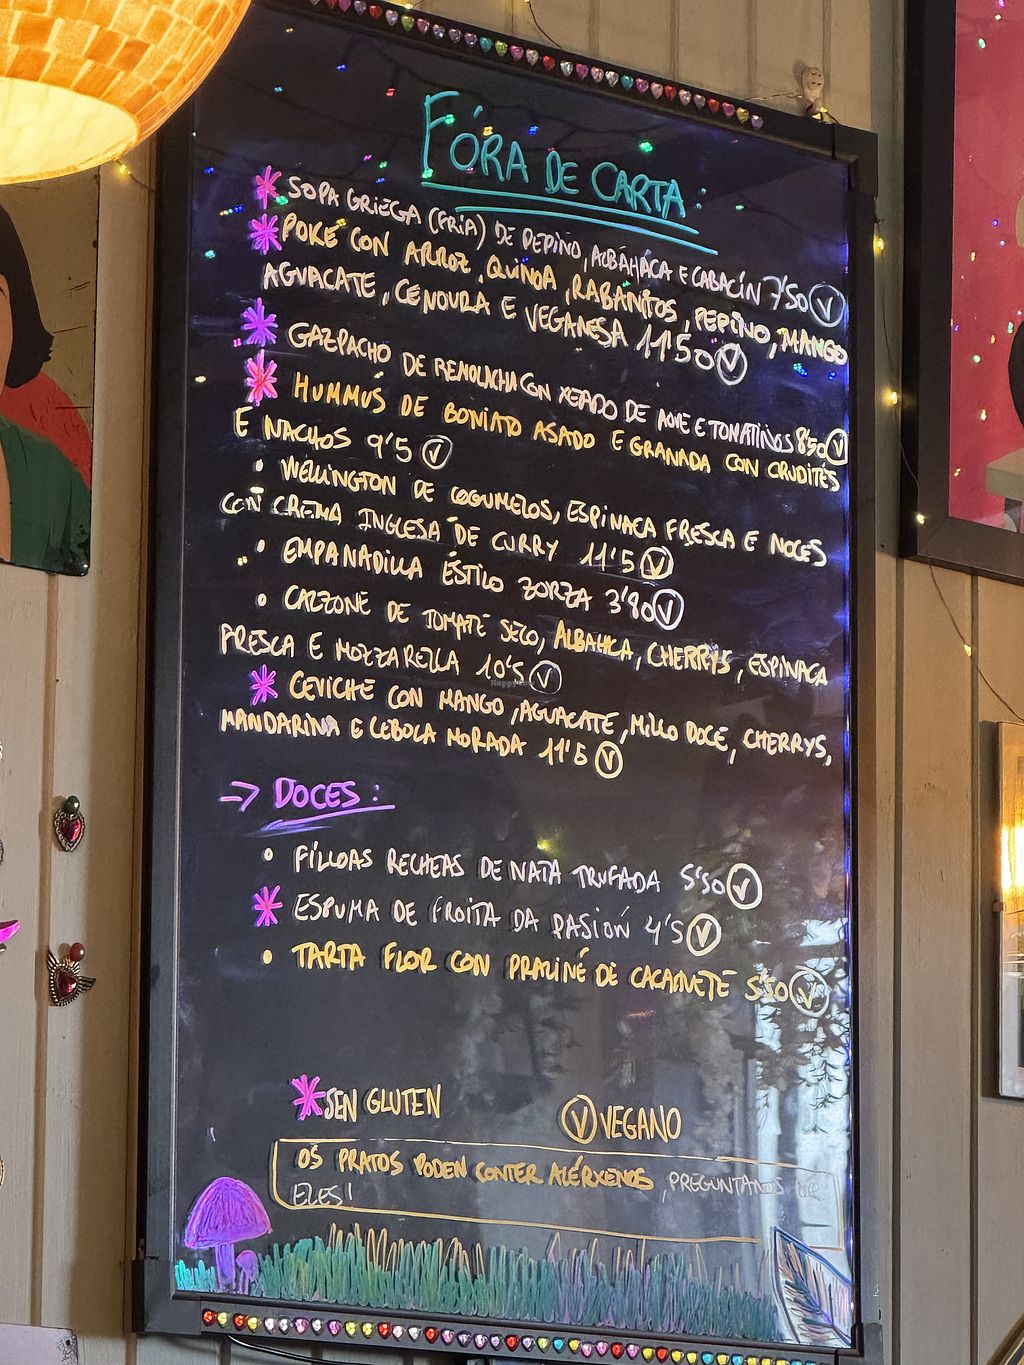 FÓRA DE CARTA
* SOPA GRIEGA (FRÍA) DE PEPINO, ALBAHACA E CABACÍN 7'50 Ⓥ
* POKE CON ARROZ, QUINOA, RABANITOS, PEPINO, MANGO
AGUACATE, CENOURA E VEGANESA 11'50 Ⓥ
* GAZPACHO DE REMOLACHA CON XEADO DE AOVE E TOMATIÑOS 8'50 Ⓥ
* HUMMUS DE BONIATO ASADO E GRANADA CON CRUDITÉS
E NACHOS 9'5 Ⓥ
• WELLINGTON DE COGUMELOS, ESPINACA FRESCA E NOCES
CON CREMA INGLESA DE CURRY 11'5 Ⓥ
• EMPANADILLA ESTILO ZORZA 3'80 Ⓥ
• CALZONE DE TOMATE SECO, ALBAHACA, CHERRYS, ESPINACA
FRESCA E MOZZARELLA 10'5 Ⓥ
* CEVICHE CON MANGO, AGUACATE, MILLO DOCE, CHERRYS,
MANDARINA E CEBOLA MORADA 11'5 Ⓥ
-> DOCES:
• FILLOAS RECHEAS DE NATA TRUFADA 5'50 Ⓥ
* ESPUMA DE FROITA DA PASIÓN 4'5 Ⓥ
• TARTA FLOR CON PRALINÉ DE CACAHUETE 5'50 Ⓥ
* SEN GLUTEN
Ⓥ VEGANO
OS PRATOS PODEN CONTER ALÉRXENOS, PREGUNTANOS POR
ELES!